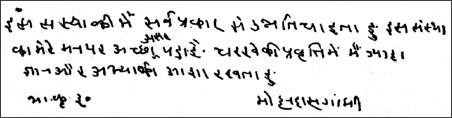 इस संस्थाकी मैं सर्व प्रकार से उन्नति चाहता हुं. इस संस्था
का मेरे मनपर अच्छा असर पड़ा है. चरखेकी प्रवृत्तिमें मैं ज्यादा
ज्ञान और अभ्यासकी आशा रखता हुं
मोहनदास गांधी